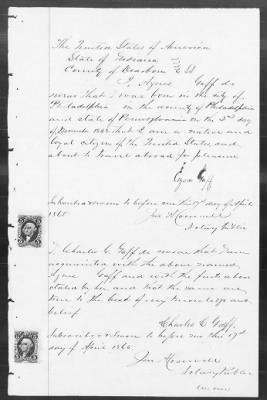 The United States of America
State of Indiana
County of Dearborn
I, Agnes Gaff do
swear that I was born in the city of
Philadelphia in the county of Philadelphia
and state of Pennsylvania on the 2nd day
of that I am a native and
loyal citizen of the United States and
about to travel abroad for pleasure
Agnes Gaff
Subscribed & sworn to before me this 17th day of April
1865
Notary Public
I, Charles C. Gaff do swear that I am
acquainted with the above named
Agnes Gaff and with the facts above
stated by her and that the same are
true to the best of my knowledge and
belief
Charles C. Gaff.
Subscribed & sworn to before me this 17th
day of April 1865.
Notary Public